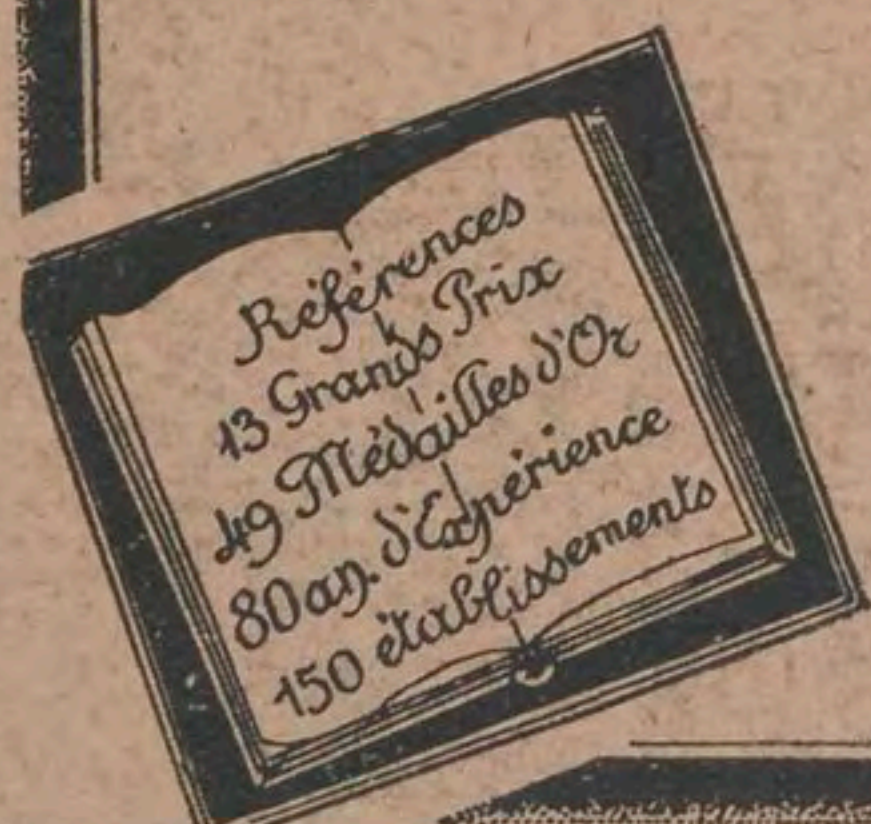 Références
13 Grands Prix
49 Médailles d'Or
80 an. d'Expérience
150 établissements